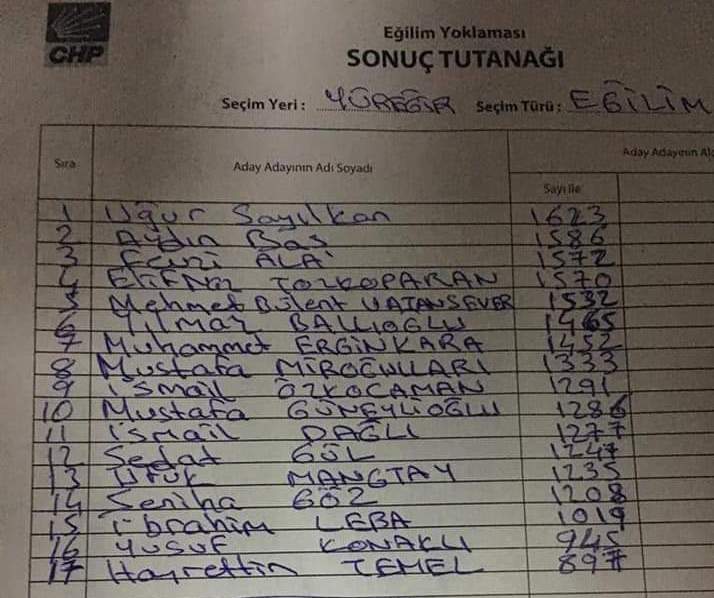 CHP
Eğilim Yoklaması
SONUÇ TUTANAĞI
Seçim Yeri : YÜREĞİR Seçim Türü : EĞİLİM
Sıra
Aday Adayının Adı Soyadı
Aday Adayının Al
Sayı ile
1 Uğur Sayılkan 1623
2 Aydın Baş 1586
3 Fevzi ALA 1572
4 Elifnaz TOZKOPARAN 1570
5 Mehmet Bülent VATANSEVER 1532
6 Yılmaz BALLIOĞLU 1465
7 Muhammet ERGİNKARA 1452
8 Mustafa MİROĞULLARI 1333
9 İsmail ÖZKOCAMAN 1291
10 Mustafa GÜNEYLİOĞLU 1286
11 İsmail DAĞLI 1277
12 Sedat GÜL 1247
13 Ufuk MANGTAY 1235
14 Seniha GÖZ 1208
15 İbrahim LEBA 1019
16 YUSUF KONAKLI 945
17 Hayrettin TEMEL 897